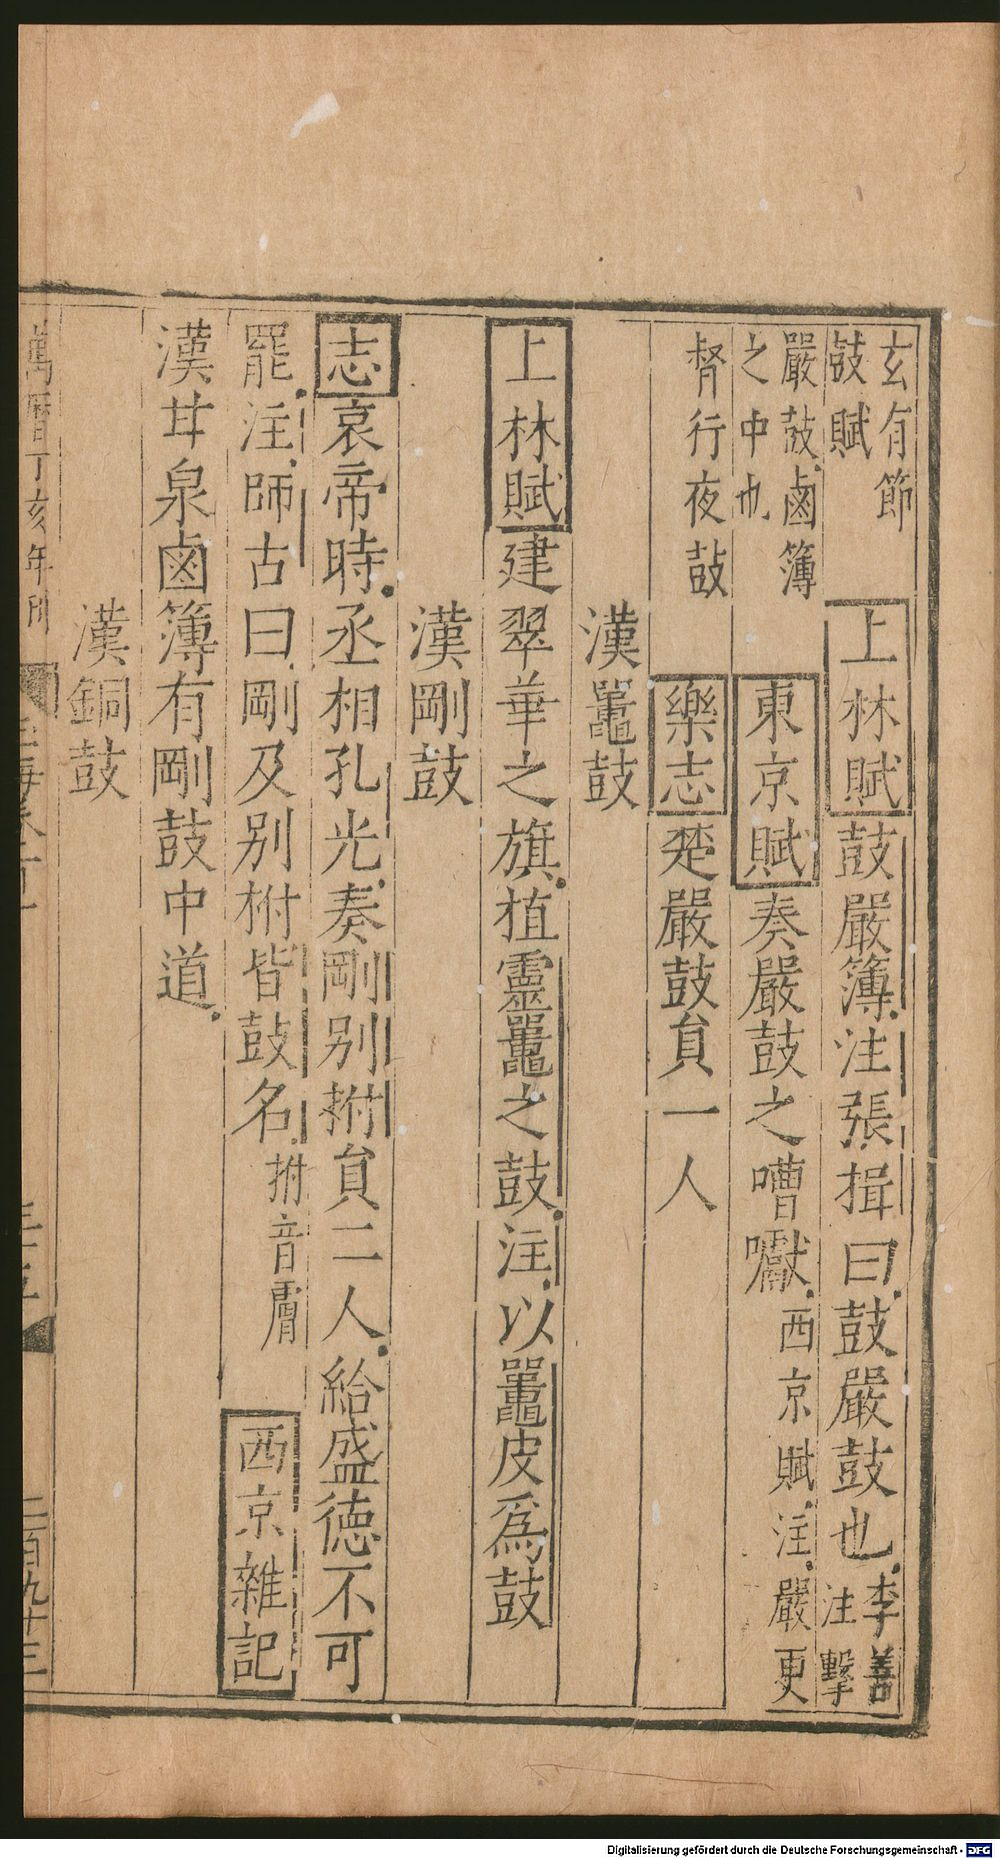 玄有節
鼓賦
上林賦鼓嚴簿注張揖曰鼓嚴鼓也李善
注擊
嚴鼓鹵簿
之中也
東京賦奏嚴鼓之嘈囐西京賦注嚴更
督行夜鼓
樂志楚嚴鼓員一人
漢鼉鼓
上林賦建翠華之旗植靈鼉之鼓注以鼉皮爲鼓
漢剛鼓
志哀帝時丞相孔光奏剛别拊員二人給盛德不可
罷注師古曰剛及别柎皆鼓名拊音膚
西京雜記
漢甘泉鹵簿有剛鼓中道
漢銅鼓
萬曆丁亥年刊
二百九十三
Digitalisierung gefördert durch die Deutsche Forschungsgemeinschaft - DFG